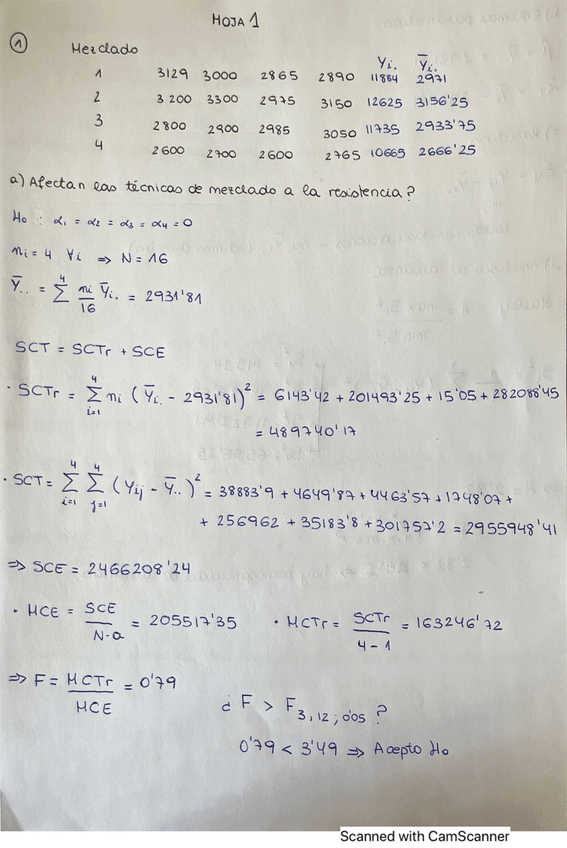 HOJA 1
① Mezclado Yi. Ȳi.
1 3129 3000 2865 2890 11884 2971
2 3200 3300 2975 3150 12625 3156'25
3 2800 2900 2985 3050 11735 2933'75
4 2600 2700 2600 2765 10665 2666'25
a) Afectan las técnicas de mezclado a la resistencia?
Ho : α1 = α2 = α3 = α4 = 0
ni = 4 ∀i => N = 16
Ȳ.. = Σ(4) ni/16 Ȳi. = 2931'81
SCT = SCTr + SCE
· SCTr = Σ(i=1, 4) ni (Ȳi. - 2931'81)² = 6143'42 + 201493'25 + 15'05 + 282088'45
= 489740'17
· SCT = Σ(i=1, 4) Σ(j=1, 4) (Yij - Ȳ..)² = 38883'9 + 4649'87 + 4463'57 + 1748'07 +
+ 256962 + 35183'8 + 301757'2 = 2955948'41
=> SCE = 2466208'24
· MCE = SCE/N-a = 205517'35 · MCTr = SCTr/4-1 = 163246'72
=> F = MCTr/MCE = 0'79
¿ F > F3,12;0'05 ?
0'79 < 3'49 => Acepto Ho
Scanned with CamScanner